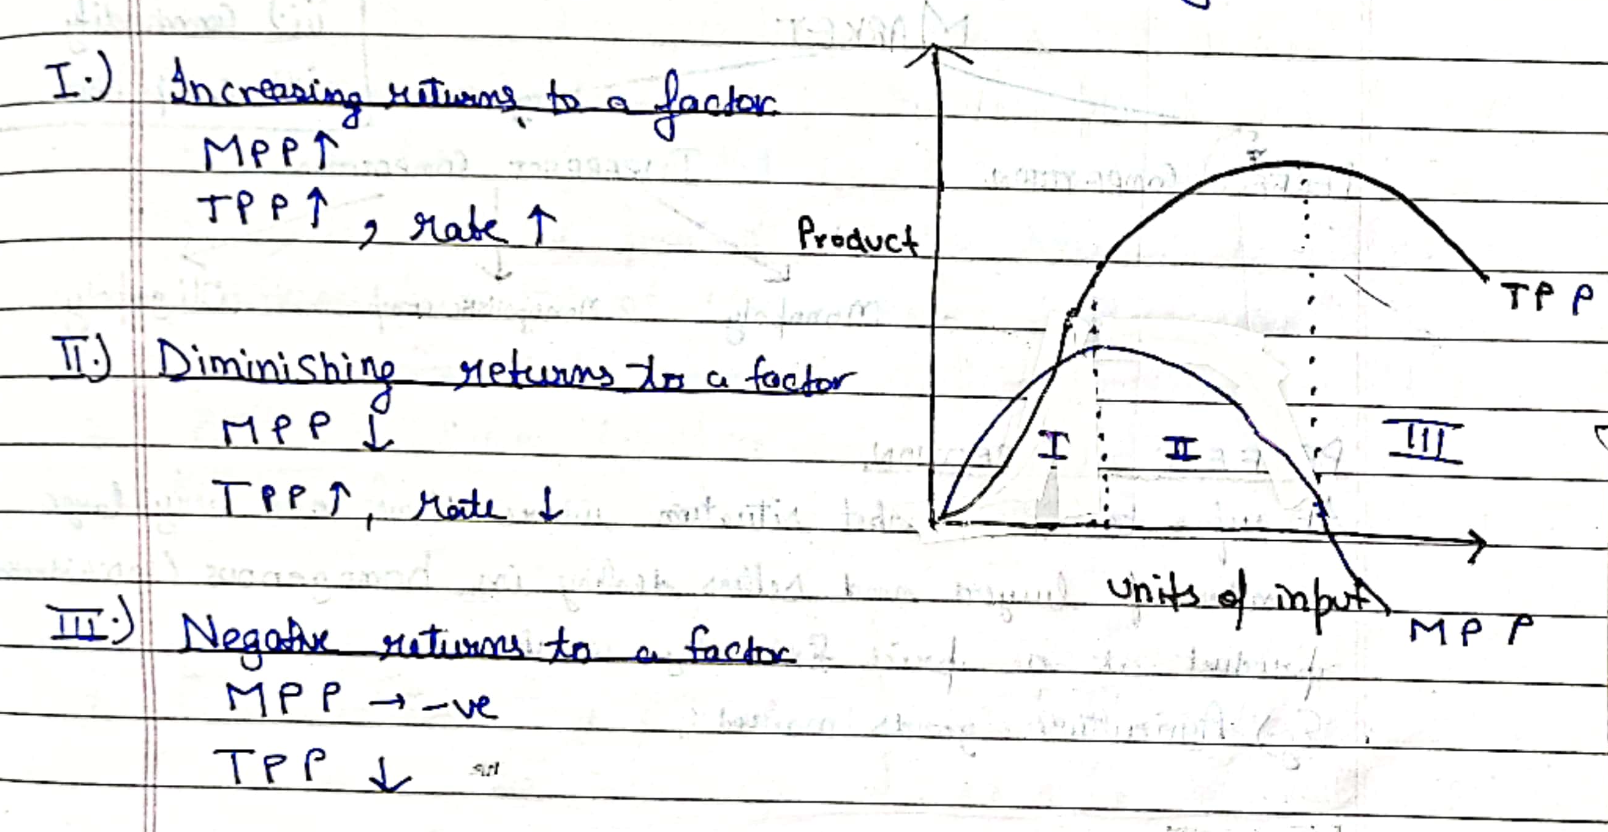 I.) Increasing returns to a factor
MPP↑
TPP↑, rate ↑
II.) Diminishing returns to a factor
MPP ↓
TPP↑, rate ↓
III.) Negative returns to a factor
MPP → -ve
TPP ↓
Product
TPP
I II III
units of input
MPP